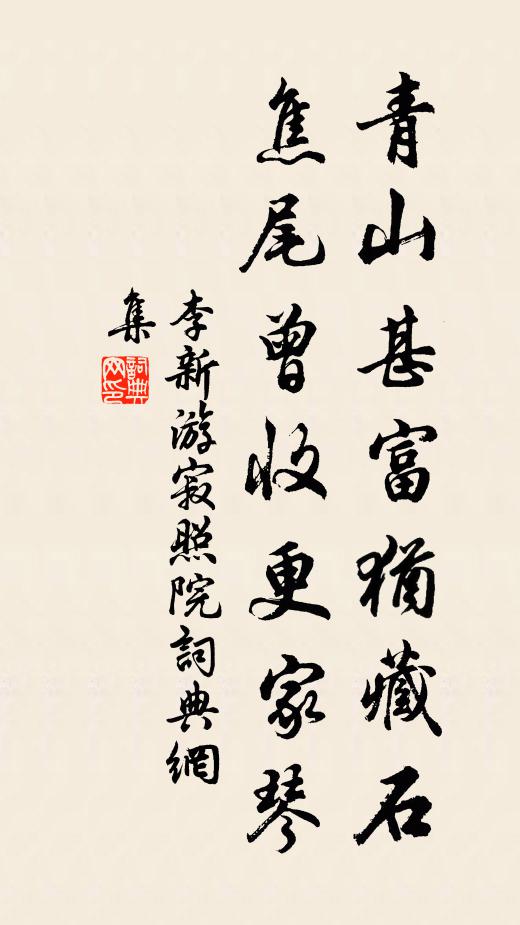 青山甚富猶藏石
焦尾曾收更家琴
李新游寂照院詞典網
集
詞典
网印